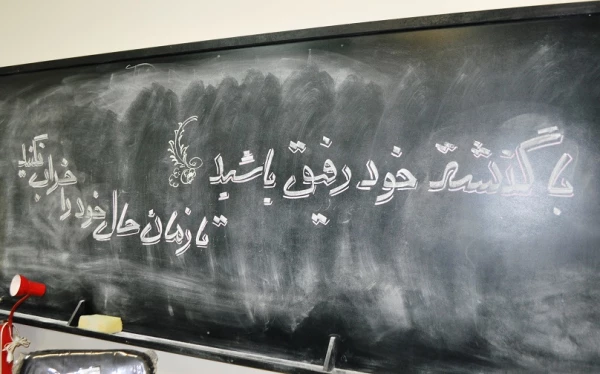 با گذشته خود رفیق باشید
تا زمان حال خود را خراب نکنید